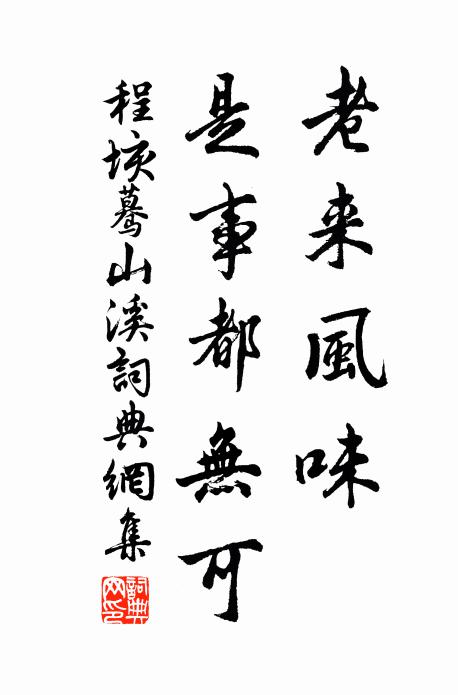 老来風味
是事都無可
程垓驀山溪詞典網集
詞典网印